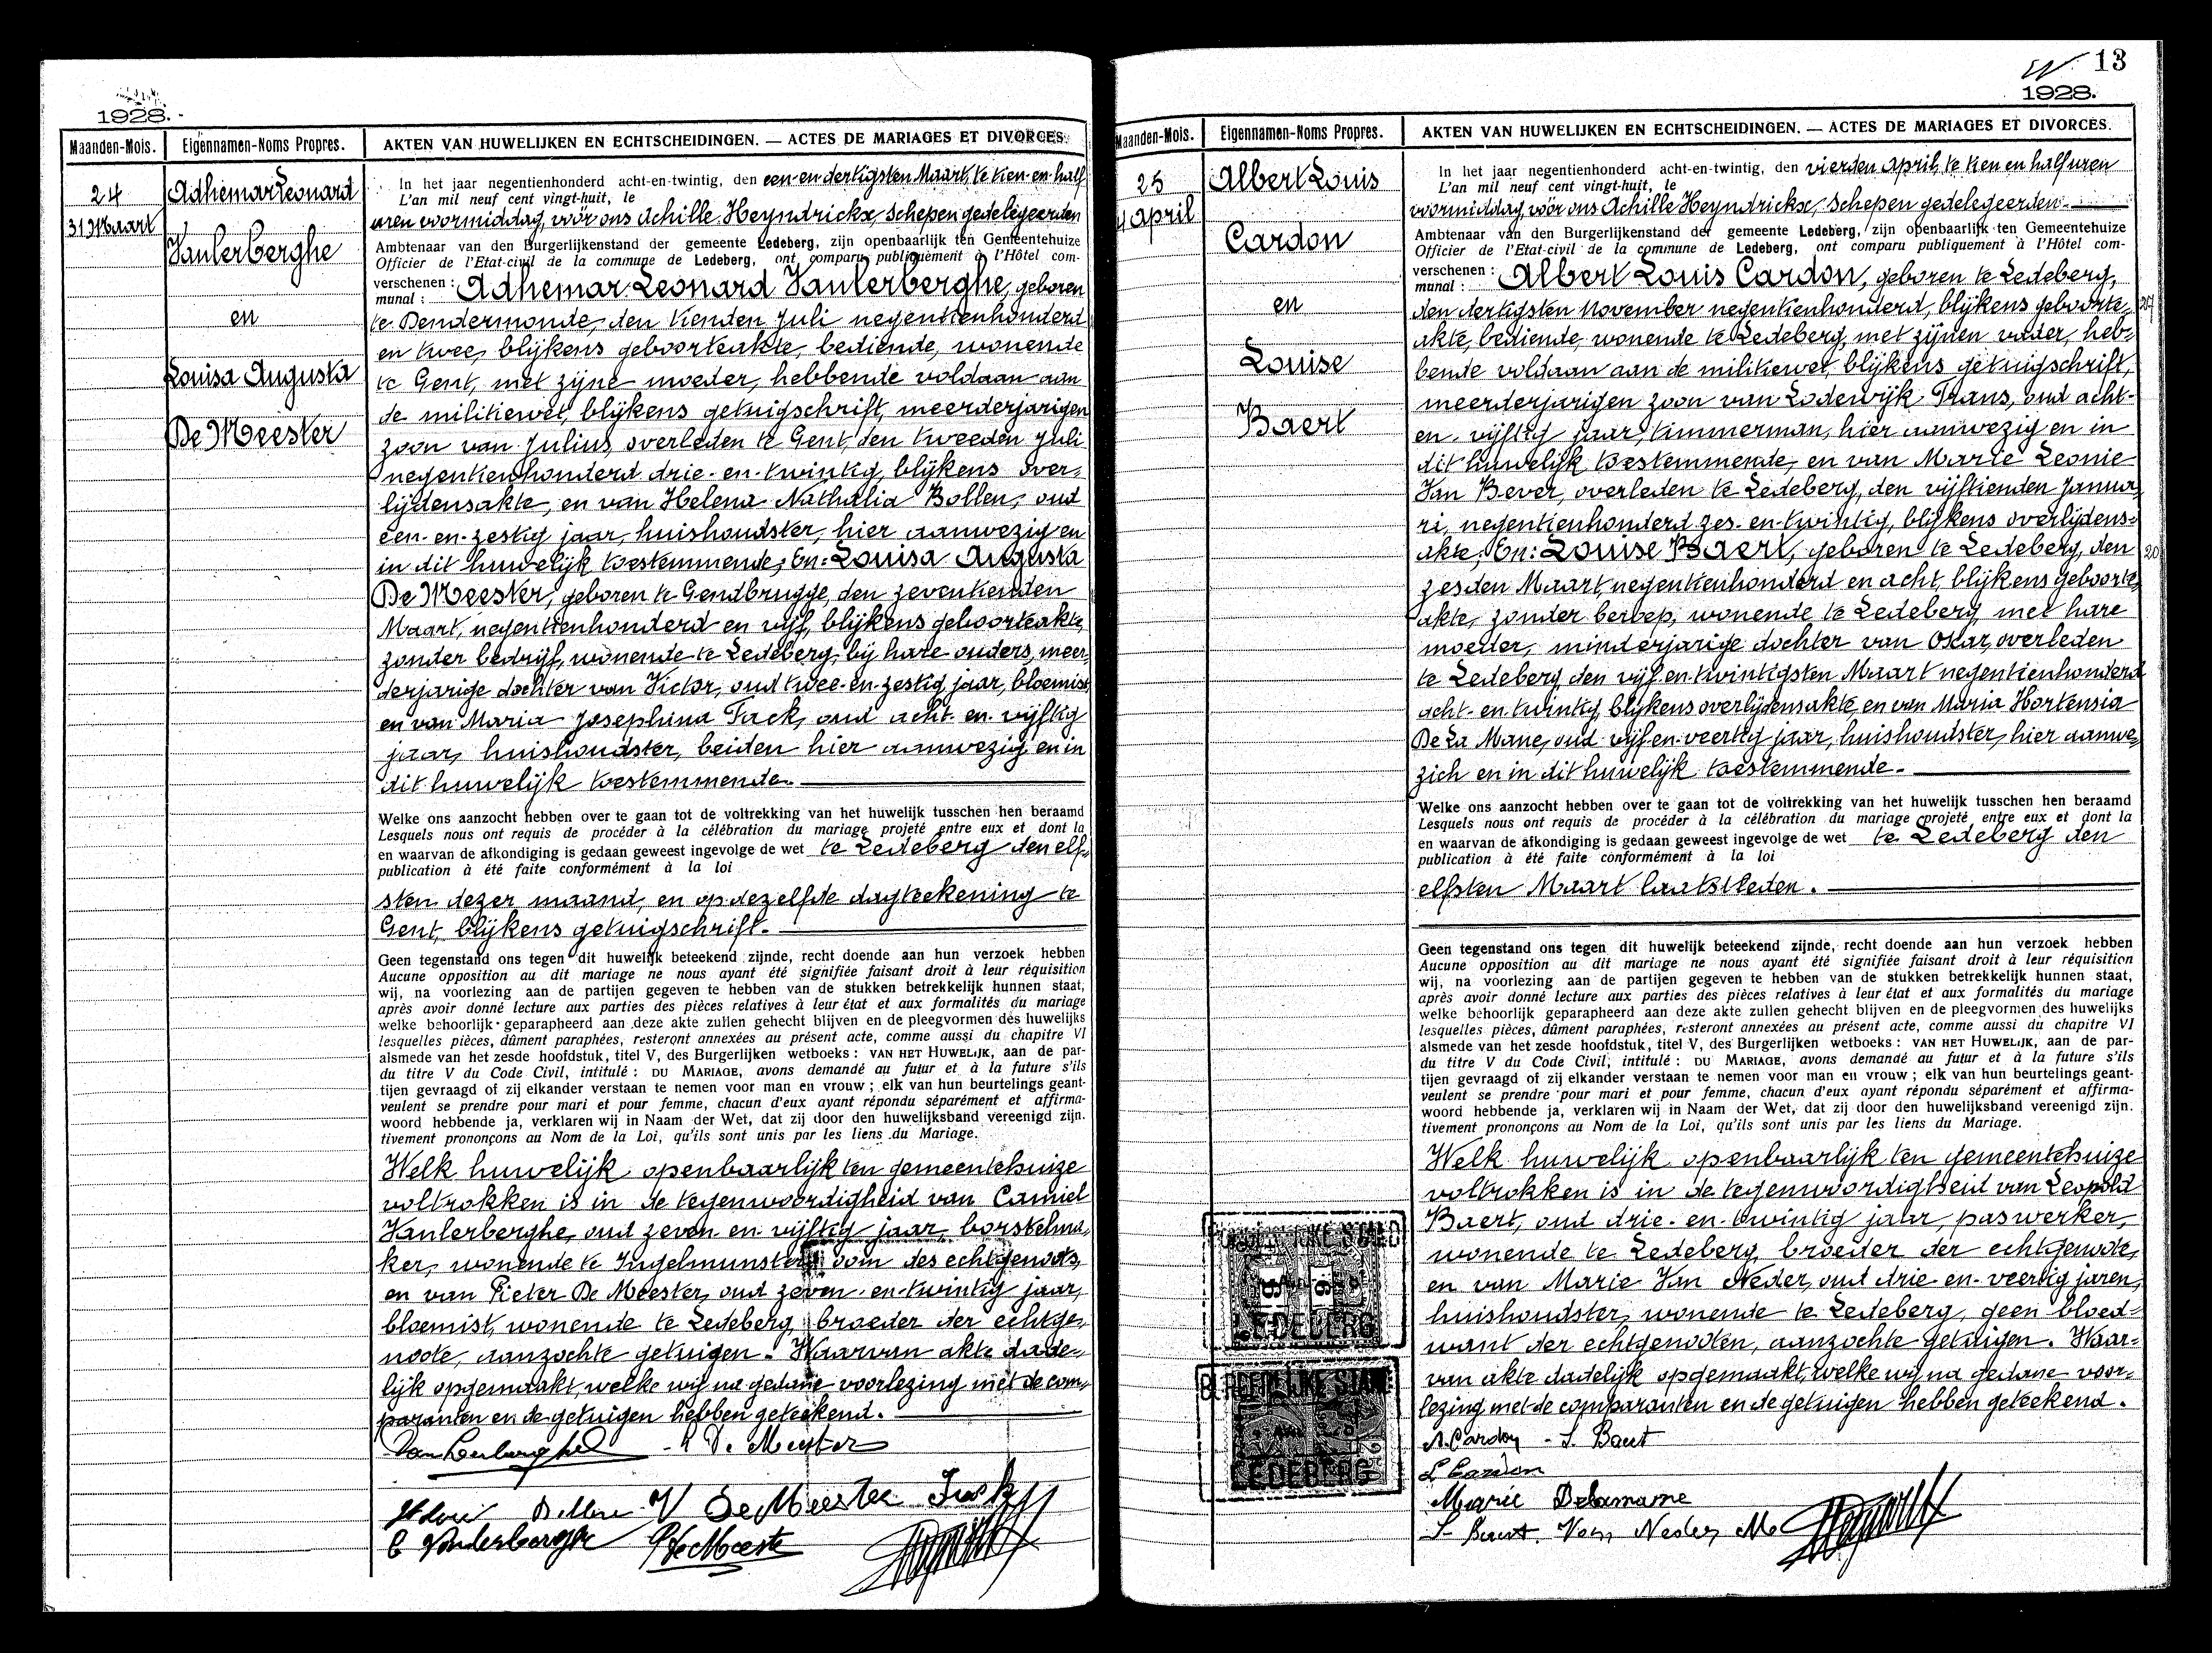 1928.
Maanden-Mois. Eigennamen-Noms Propres. AKTEN VAN HUWELIJKEN EN ECHTSCHEIDINGEN. — ACTES DE MARIAGES ET DIVORCES.
24
31 Maart
Adhemar Leonard
Vanlerberghe
en
Louisa Augusta
De Meester
In het jaar negentienhonderd acht-en-twintig, den een-en-dertigsten Maart, te tien-en-half
L'an mil neuf cent vingt-huit, le
uren voormiddag, vóór ons Achille Heyndrickx, Schepen gedelegeerden
Ambtenaar van den Burgerlijkenstand der gemeente Ledeberg, zijn openbaarlijk ten Gemeentehuize
Officier de l'Etat-civil de la commune de Ledeberg, ont comparu publiquement à l'Hôtel com-
verschenen : Adhemar Leonard Vanlerberghe, geboren
munal :
te Dendermonde, den tienden Juli negentienhonderd
en twee, blijkens geboorteakte, bediende, wonende
te Gent, met zijne moeder, hebbende voldaan aan
de militiewet, blijkens getuigschrift, meerderjarigen
zoon van Julius, overleden te Gent, den tweeden Juli
negentienhonderd drie-en-twintig, blijkens over-
lijdensakte, en van Helena Nathalia Bollen, oud
een-en-zestig jaar, huishoudster, hier aanwezig en
in dit huwelijk toestemmende; En: Louisa Augusta
De Meester, geboren te Gendbrugge, den zeventienden
Maart, negentienhonderd en vijf, blijkens geboorteakte,
zonder bedrijf, wonende te Ledeberg, bij hare ouders, meer-
derjarige dochter van Victor, oud twee-en-zestig jaar, bloemist,
en van Maria Josephina Tack, oud acht-en-vijftig
jaar, huishoudster, beiden hier aanwezig en in
dit huwelijk toestemmende.
Welke ons aanzocht hebben over te gaan tot de voltrekking van het huwelijk tusschen hen beraamd
Lesquels nous ont requis de procéder à la célébration du mariage projeté entre eux et dont la
en waarvan de afkondiging is gedaan geweest ingevolge de wet te Ledeberg den elf-
publication à été faite conformément à la loi
sten dezer maand, en op dezelfde dagteekening te
Gent, blijkens getuigschrift.
Geen tegenstand ons tegen dit huwelijk beteekend zijnde, recht doende aan hun verzoek hebben
Aucune opposition au dit mariage ne nous ayant été signifiée faisant droit à leur réquisition
wij, na voorlezing aan de partijen gegeven te hebben van de stukken betrekkelijk hunnen staat,
après avoir donné lecture aux parties des pièces relatives à leur état et aux formalités du mariage
welke behoorlijk geparapheerd aan deze akte zullen gehecht blijven en de pleegvormen des huwelijks
lesquelles pièces, dûment paraphées, resteront annexées au présent acte, comme aussi du chapitre VI
alsmede van het zesde hoofdstuk, titel V, des Burgerlijken wetboeks : VAN HET HUWELIJK, aan de par-
du titre V du Code Civil, intitulé : DU MARIAGE, avons demandé au futur et à la future s'ils
tijen gevraagd of zij elkander verstaan te nemen voor man en vrouw ; elk van hun beurtelings geant-
veulent se prendre pour mari et pour femme, chacun d'eux ayant répondu séparément et affirma-
woord hebbende ja, verklaren wij in Naam der Wet, dat zij door den huwelijksband vereenigd zijn.
tivement prononçons au Nom de la Loi, qu'ils sont unis par les liens du Mariage.
Welk huwelijk openbaarlijk ten gemeentehuize
voltrokken is in de tegenwoordigheid van Camiel
Vanlerberghe, oud zeven-en-vijftig jaar, borstelma-
ker, wonende te Ingelmunster, oom des echtgenoots,
en van Pieter De Meester, oud zeven-en-twintig jaar,
bloemist, wonende te Ledeberg, broeder der echtge-
noote, aanzochte getuigen. Waarvan akte dade-
lijk opgemaakt, welke wij na gedane voorlezing met de com-
paranten en de getuigen hebben geteekend.
L De Meester
V De Meester Tack
C Vanlerberghe P De Meester
13
1928.
Maanden-Mois. Eigennamen-Noms Propres. AKTEN VAN HUWELIJKEN EN ECHTSCHEIDINGEN. — ACTES DE MARIAGES ET DIVORCES.
25
4 April
Albert Louis
Cardon
en
Louise
Baert
In het jaar negentienhonderd acht-en-twintig, den vierden April, te tien en half uren
L'an mil neuf cent vingt-huit, le
voormiddag, vóór ons Achille Heyndrickx, Schepen gedelegeerden
Ambtenaar van den Burgerlijkenstand der gemeente Ledeberg, zijn openbaarlijk ten Gemeentehuize
Officier de l'Etat-civil de la commune de Ledeberg, ont comparu publiquement à l'Hôtel com-
verschenen : Albert Louis Cardon, geboren te Ledeberg,
munal :
den dertigsten November negentienhonderd, blijkens geboorte-
akte, bediende, wonende te Ledeberg, met zijnen vader, heb-
bende voldaan aan de militiewet, blijkens getuigschrift,
meerderjarigen zoon van Lodewijk Frans, oud acht-
en-vijftig jaar, timmerman, hier aanwezig en in
dit huwelijk toestemmende, en van Marie Leonie
Van Bever, overleden te Ledeberg, den vijftienden Janua-
ri, negentienhonderd zes-en-twintig, blijkens overlijdens-
akte; En: Louise Baert, geboren te Ledeberg, den
zesden Maart, negentienhonderd en acht, blijkens geboorte-
akte, zonder beroep, wonende te Ledeberg met hare
moeder, minderjarige dochter van Oscar, overleden
te Ledeberg den vijf-en-twintigsten Maart negentienhonderd
acht-en-twintig, blijkens overlijdensakte, en van Maria Hortensia
De La Mane, oud vijf-en-veertig jaar, huishoudster, hier aanwe-
zich en in dit huwelijk toestemmende.
Welke ons aanzocht hebben over te gaan tot de voltrekking van het huwelijk tusschen hen beraamd
Lesquels nous ont requis de procéder à la célébration du mariage projeté entre eux et dont la
en waarvan de afkondiging is gedaan geweest ingevolge de wet te Ledeberg den
publication à été faite conformément à la loi
elfsten Maart laatstleden.
Geen tegenstand ons tegen dit huwelijk beteekend zijnde, recht doende aan hun verzoek hebben
Aucune opposition au dit mariage ne nous ayant été signifiée faisant droit à leur réquisition
wij, na voorlezing aan de partijen gegeven te hebben van de stukken betrekkelijk hunnen staat,
après avoir donné lecture aux parties des pièces relatives à leur état et aux formalités du mariage
welke behoorlijk geparapheerd aan deze akte zullen gehecht blijven en de pleegvormen des huwelijks
lesquelles pièces, dûment paraphées, resteront annexées au présent acte, comme aussi du chapitre VI
alsmede van het zesde hoofdstuk, titel V, des Burgerlijken wetboeks : VAN HET HUWELIJK, aan de par-
du titre V du Code Civil, intitulé : DU MARIAGE, avons demandé au futur et à la future s'ils
tijen gevraagd of zij elkander verstaan te nemen voor man en vrouw ; elk van hun beurtelings geant-
veulent se prendre pour mari et pour femme, chacun d'eux ayant répondu séparément et affirma-
woord hebbende ja, verklaren wij in Naam der Wet, dat zij door den huwelijksband vereenigd zijn.
tivement prononçons au Nom de la Loi, qu'ils sont unis par les liens du Mariage.
Welk huwelijk openbaarlijk ten gemeentehuize
voltrokken is in de tegenwoordigheid van Leopold
Baert, oud drie-en-twintig jaar, paswerker,
wonende te Ledeberg broeder der echtgenoote,
en van Marie Van Neder, oud drie-en-veertig jaren,
huishoudster, wonende te Ledeberg, geen bloed-
want der echtgenooten, aanzochte getuigen. Waar-
van akte dadelijk opgemaakt, welke wij na gedane voor-
lezing met de comparanten en de getuigen hebben geteekend.
A. Cardon - L. Baert
L Cardon
Marie Delamane
L Baert. Van Neder M
LEDEBERG
LEDEBERG